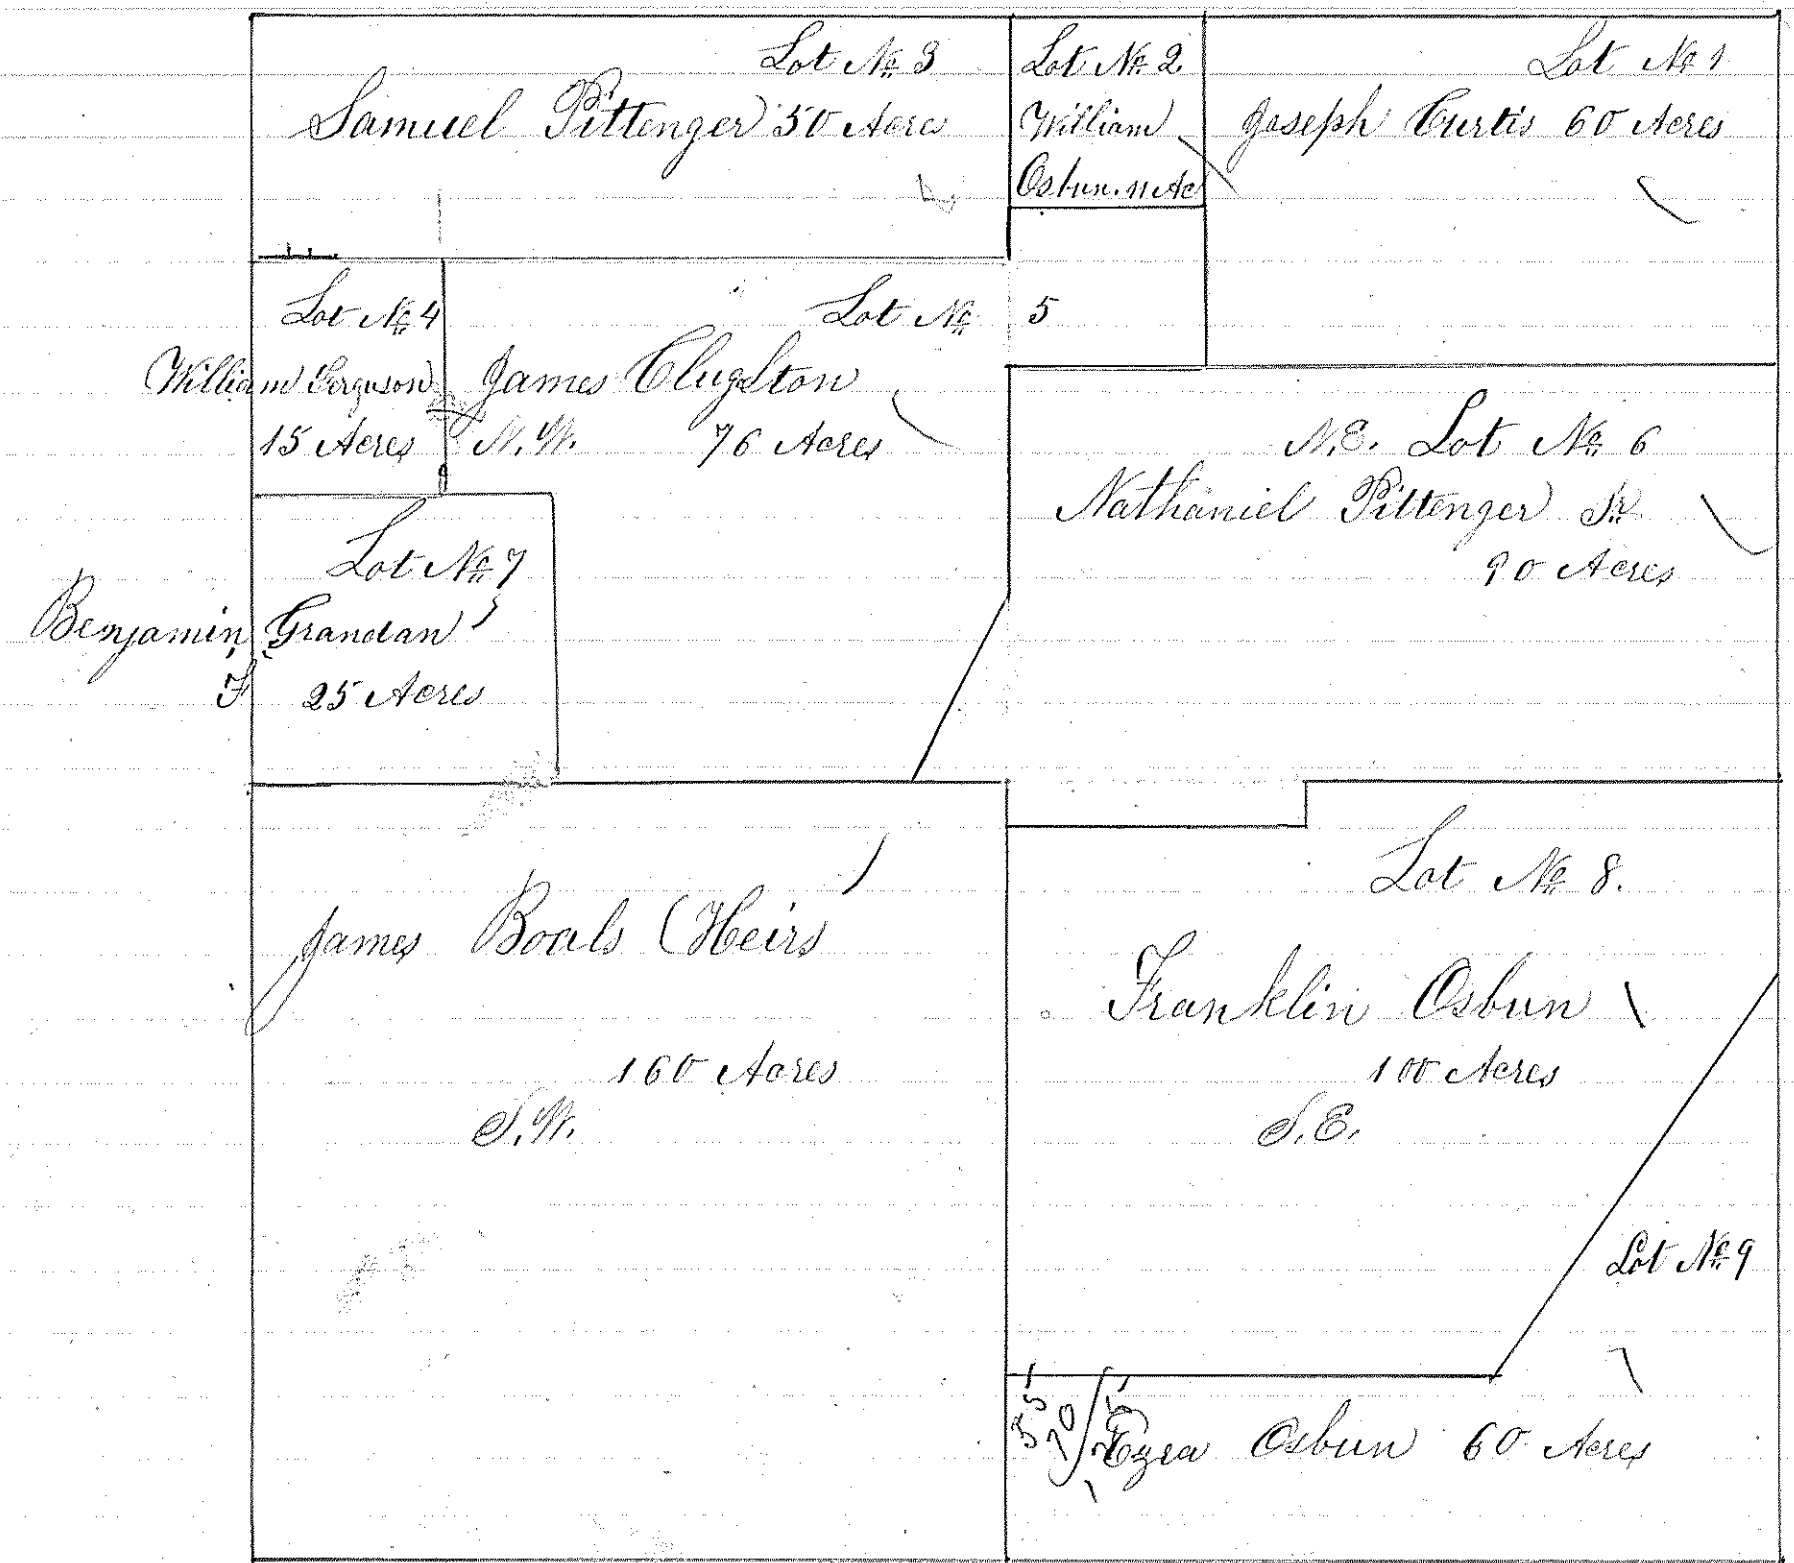 Lot No 3
Samuel Pittenger 50 Acres
Lot No 2
William
Osbun. 11 Ac
Lot No 1
Joseph Curtis 60 Acres
Lot No 4
William Ferguson
15 Acres
Lot No 5
James Clugston
N.W. 76 Acres
N.E. Lot No 6
Nathaniel Pittenger Sr.
90 Acres
Lot No 7
Benjamin Grandan
F 25 Acres
James Boals (Heirs
160 Acres
S.W.
Lot No 8.
Franklin Osbun
100 Acres
S.E.
Lot No 9
Ezra Osbun 60 Acres